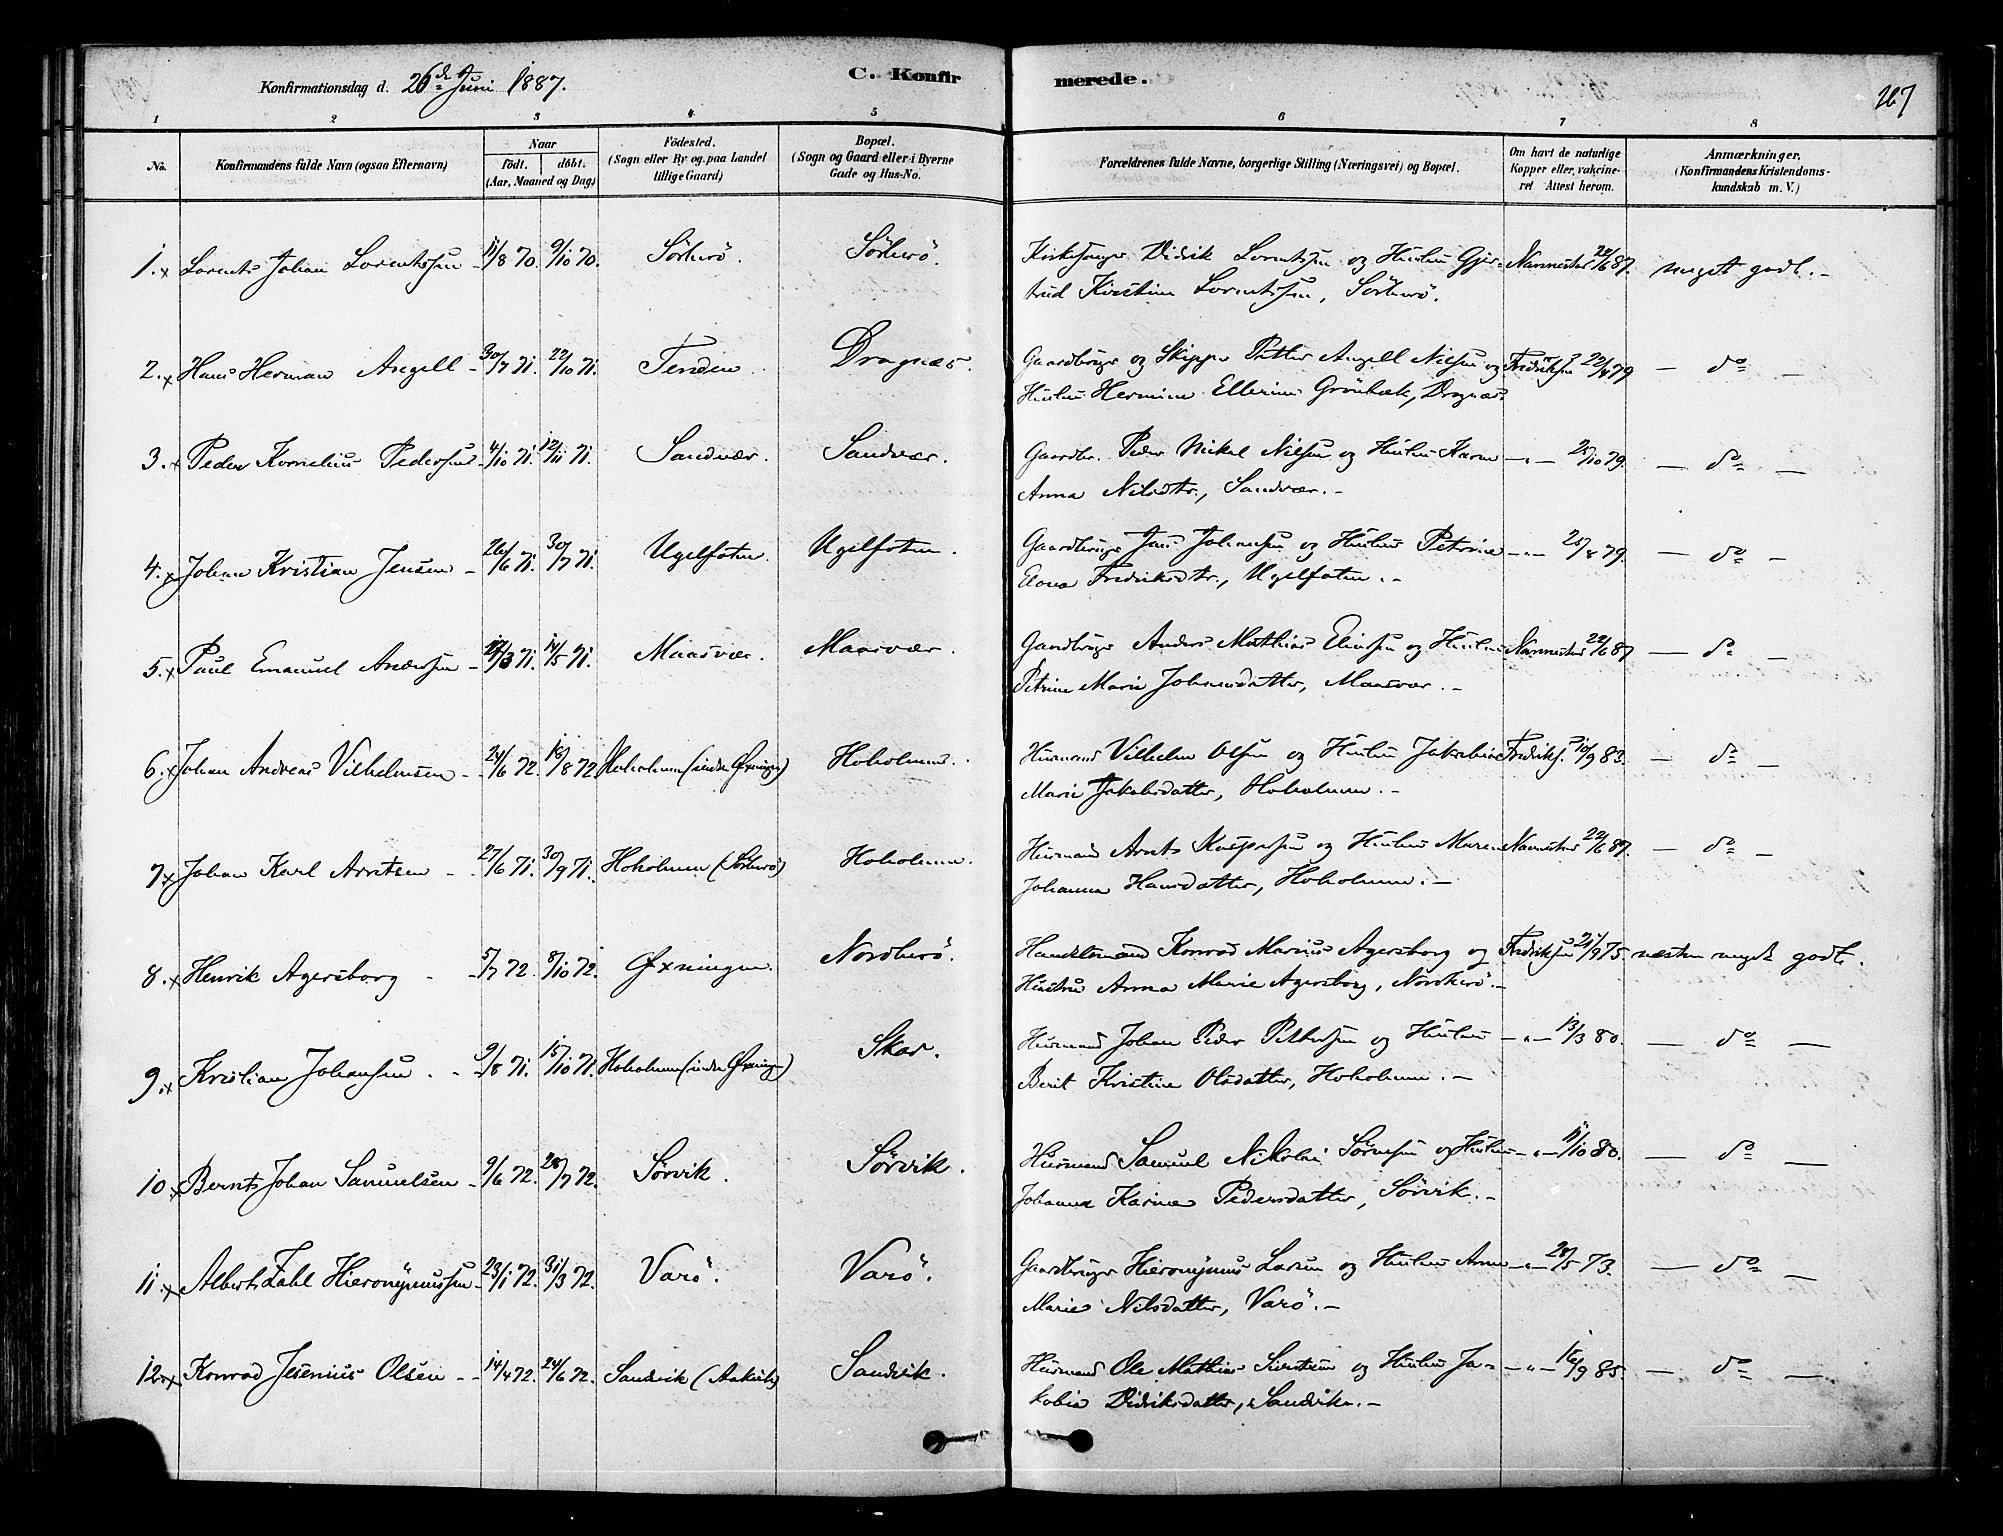 Konfirmationsdag d. 26de Juni 1887.
C. Konfirmerede.
267
1 2 3 4 5 6 7 8
No.
Konfirmandens fulde Navn (ogsaa Efternavn)
Naar
födt. döbt.
(Aar, Maaned og Dag)
Födested.
(Sogn eller By og paa Landet
tillige Gaard)
Bopæl.
(Sogn og Gaard eller i Byerne
Gade og Hus-No.
Forældrenes fulde Navne, borgerlige Stilling (Næringsvei) og Bopæl.
Om havt de naturlige
Kopper eller, vakcine-
ret Attest herom.
Anmærkninger.
(Konfirmandens Kristendoms-
kundskab m. V.)
1. x Lorents Johan Lorentssen 11/8 70. 9/10 70. Sörherö. Sörherö. Kirkesanger Didrik Lorentssen og Hustru Gjer- 22/6 87. meget godt. -
trud Kirstine Lorentssen, Sörherö.
2. x Hans Herman Angell 30/7 71. 22/10 71. Tenden Dragnæs. Gaardbruger og Skipper Petter Angell Nielsen og Fredriksen 22/8 79 - do -
Hustru Hermine Ellerine Grönbæk, Dragnæs.
3. x Peder Kornelius Pedersen 4/10 71. 12/11 71. Sandvær. Sandvær. Gaardbr. Peder Mikal Nilsen og Hustru Karen - " - 25/10 79. - do -
Anna Nilsdtr., Sandvær. -
4. x Johan Kristian Jensen 26/6 71. 30/7 71. Ugelfoten. Ugelfoten. Gaardbruger Jens Johansen og Hustru Petrine - " - 25/8 79. - do -
Elona Fredriksdtr., Ugelfoten. -
5. x Paul Emanuel Andersen 17/3 71. 14/5 71. Maasvær. Maasvær. Gaardbruger Anders Mathias Eliassen og Hustru 22/6 87 - do -
Petrine Marie Johansdatter, Maasvær. -
6. x Johan Andreas Vilhelmsen 24/6 72. 18/8 72 Hoholmen (indre Øxningen) Hoholmen. Husmand Vilhelm Olsen og Hustru Jakobine Fredriks. 10/9 83. - do -
Marie Jakobsdatter, Hoholmen. -
7. x Johan Karl Arntsen 27/6 71. 30/9 71. Hoholmen (Sörherö) Hoholmen. Husmand Arnts Kaspersen og Hustru Maren 22/6 87. - do -
Johanna Hansdatter, Hoholmen. -
8. x Henrik Agersborg 5/7 72. 8/10 72. Øxningen. Nordherö. Handelsmand Konrad Marius Agersborg og Fredriksen 21/9 75 næsten meget godt.
Hustru Anna Marie Agersborg, Nordherö. -
9. x Kristian Johansen 9/8 71. 15/10 71. Hoholmen (indre Øxningen) Skar. Husmand Johan Peder Pettersen og Hustru - " - 13/3 80. - do -
Berit Kristine Olsdatter, Hoholmen. -
10 x Bernts Johan Samuelsen 9/6 72. 28/7 72. Sørvik. Sørvik. Husmand Samuel Nikolai Sørensen og Hustru - " - 11/10 80. - do -
Johanna Karine Pedersdatter, Sørvik. -
11. x Alberts Zahl Hieronymussen 23/1 72. 31/3 72. Varö. Varö. Gaardbruger Hieronymus Larsen og Hustru Anne - " - 28/5 73. - do -
Marie Nilsdatter, Varö. -
12. x Konrad Jesenius Olsen 14/4 72. 24/6 72. Sandvik Sandvik. Husmand Ole Mathias Sivertsen og Hustru Ja- - " - 16/9 85. - do -
kobia Didriksdatter, Sandvik. -